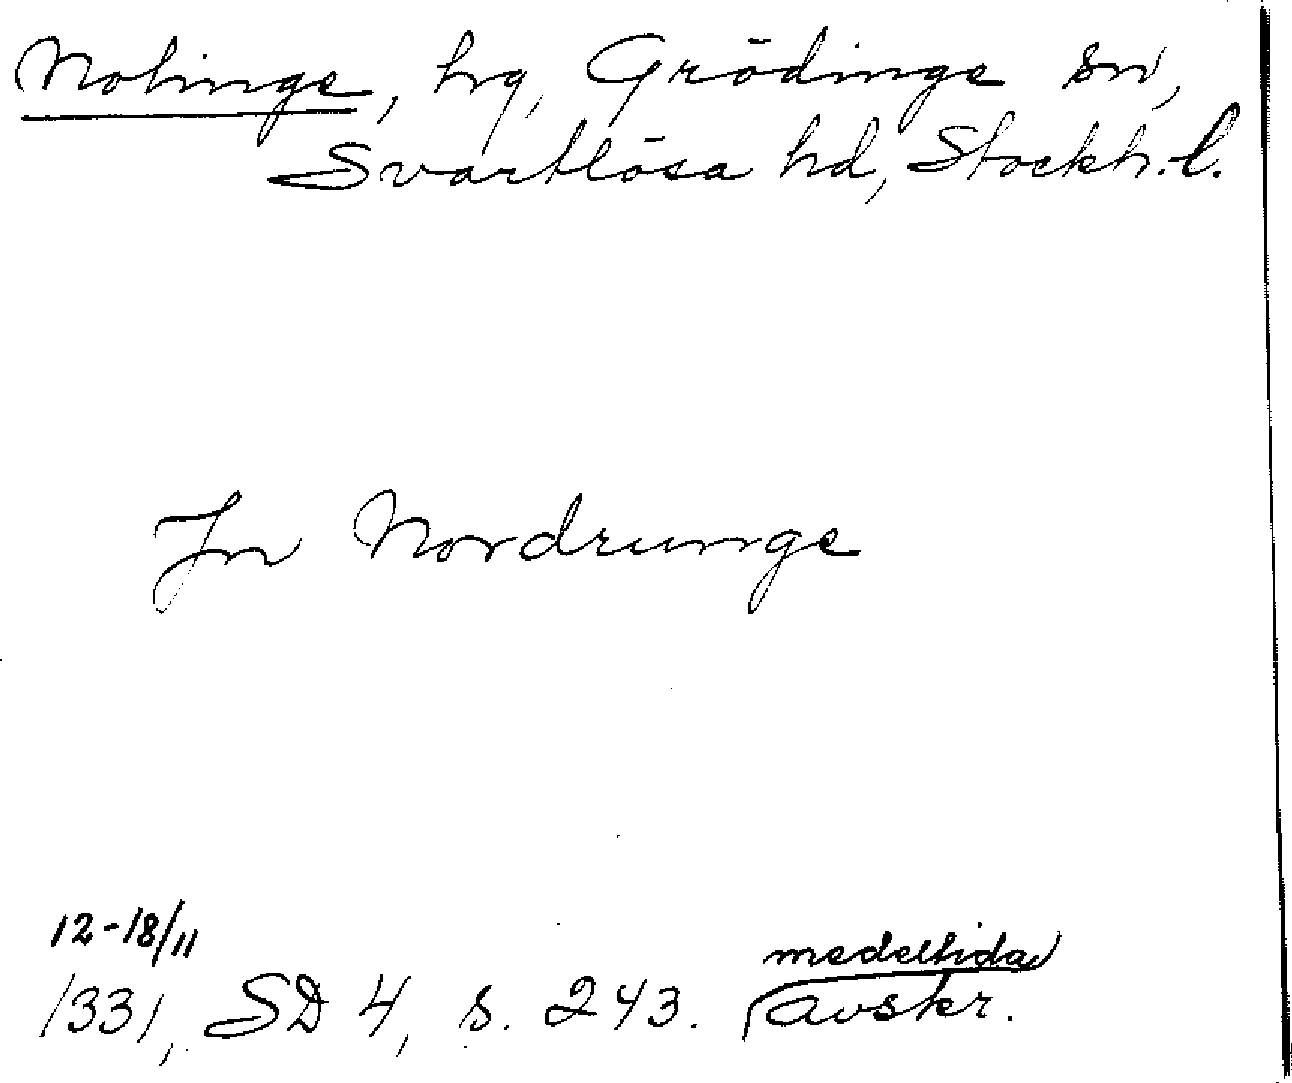 Nolinge, hrg, Grödinge sn,
Svartlösa hd, Stockh. l.
Jn Nordrunge
12-18/11
1331, SD 4, s. 243. medeltida avskr.